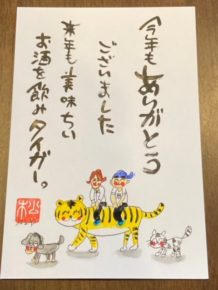 今年もありがとう
ございました
来年も美味ちい
お酒を飲みタイガー。
松